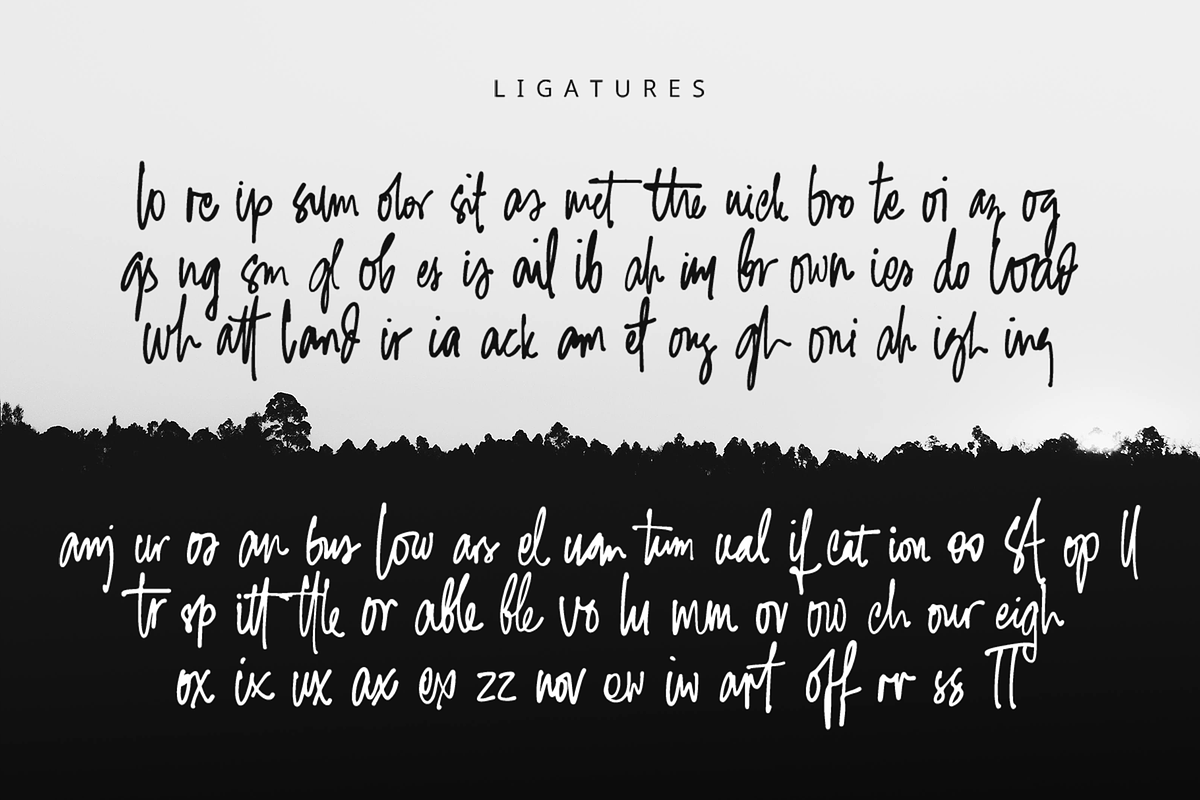 LIGATURES
lo re ip sum olor sit as met the nick bro te oi az og
gs ng sm gl ob es is ail ib ah im br own ies do load
wh att land ir ia ack am et ong gh oni ah igh ing
ur os an bus low ars el uam tum ual if cat ion oo op ll
tr sp itt ttle or able ble vo lu mm ov ow ch our eigh
ox ix ux ax ex zz nov en in art off rr ss TT